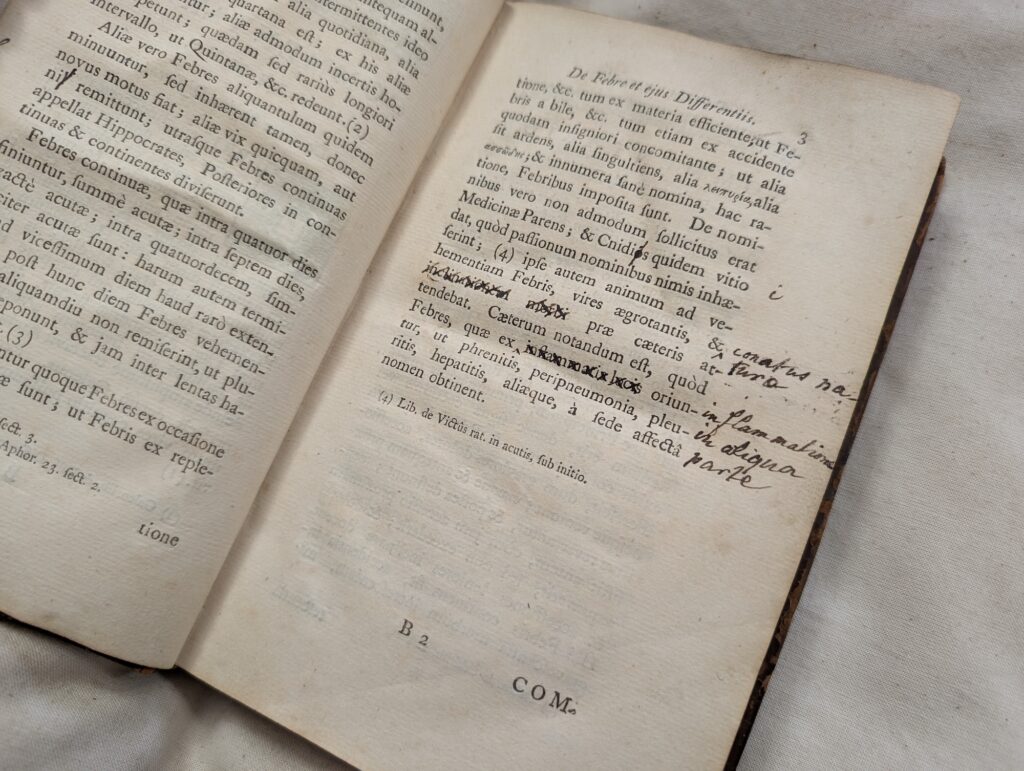 alia quotidiana, alia
quartana est; ex his aliæ
petunt; aliæ admodum incertis ho-
quædam sed rariùs longiori
intervallo, ut Quintanæ, &c. redeunt.(2)
Aliæ vero Febres aliquantulum quidem
minuuntur, sed inhærent tamen, donec
novus motus fiat; aliæ vix quicquam, aut
remittunt; utrasque Febres continuas
appellat Hippocrates, Posteriores in con-
tinuas & continentes diviserunt.
Febres continuæ, quæ intra quatuor dies
finiuntur, summè acutæ; intra septem dies,
actè acutæ; intra quatuordecem, sim-
citer acutæ sunt: harum autem termi-
ad vicessimum diem haud rarò exten-
post hunc diem Febres vehemen-
aliquamdiu non remiserint, ut plu-
eponunt, & jam inter lentas ha-
(3)
ntur quoque Febres ex occasione
æ sunt; ut Febris ex reple-
sect. 3.
Aphor. 23. sect. 2.
tione
De Febre et ejus Differentiis. 3
tione, &c. tum ex materia efficiente, ut Fe-
bris a bile, &c. tum etiam ex accidente
quodam insigniori concomitante; ut alia
sit ardens, alia singultiens, alia alia
& innumera sanè nomina, hac ra-
tione, Febribus imposita sunt. De nomi-
nibus vero non admodum sollicitus erat
Medicinæ Parens; & Cnidios quidem vitio i
dat, quòd passionum nominibus nimis inhæ-
serint; (4) ipse autem animum ad ve-
hementiam Febris, vires ægrotantis, & conatus na
præ cæteris at- turæ
tendebat. Cæterum notandum est, quòd
Febres, quæ ex oriun- inflammatione
tur, ut phrenitis, peripneumonia, pleu- in aliqua
ritis, hepatitis, aliæque, à sede affectâ parte
nomen obtinent.
(4) Lib. de Victûs rat. in acutis, sub initio.
B 2
COM-